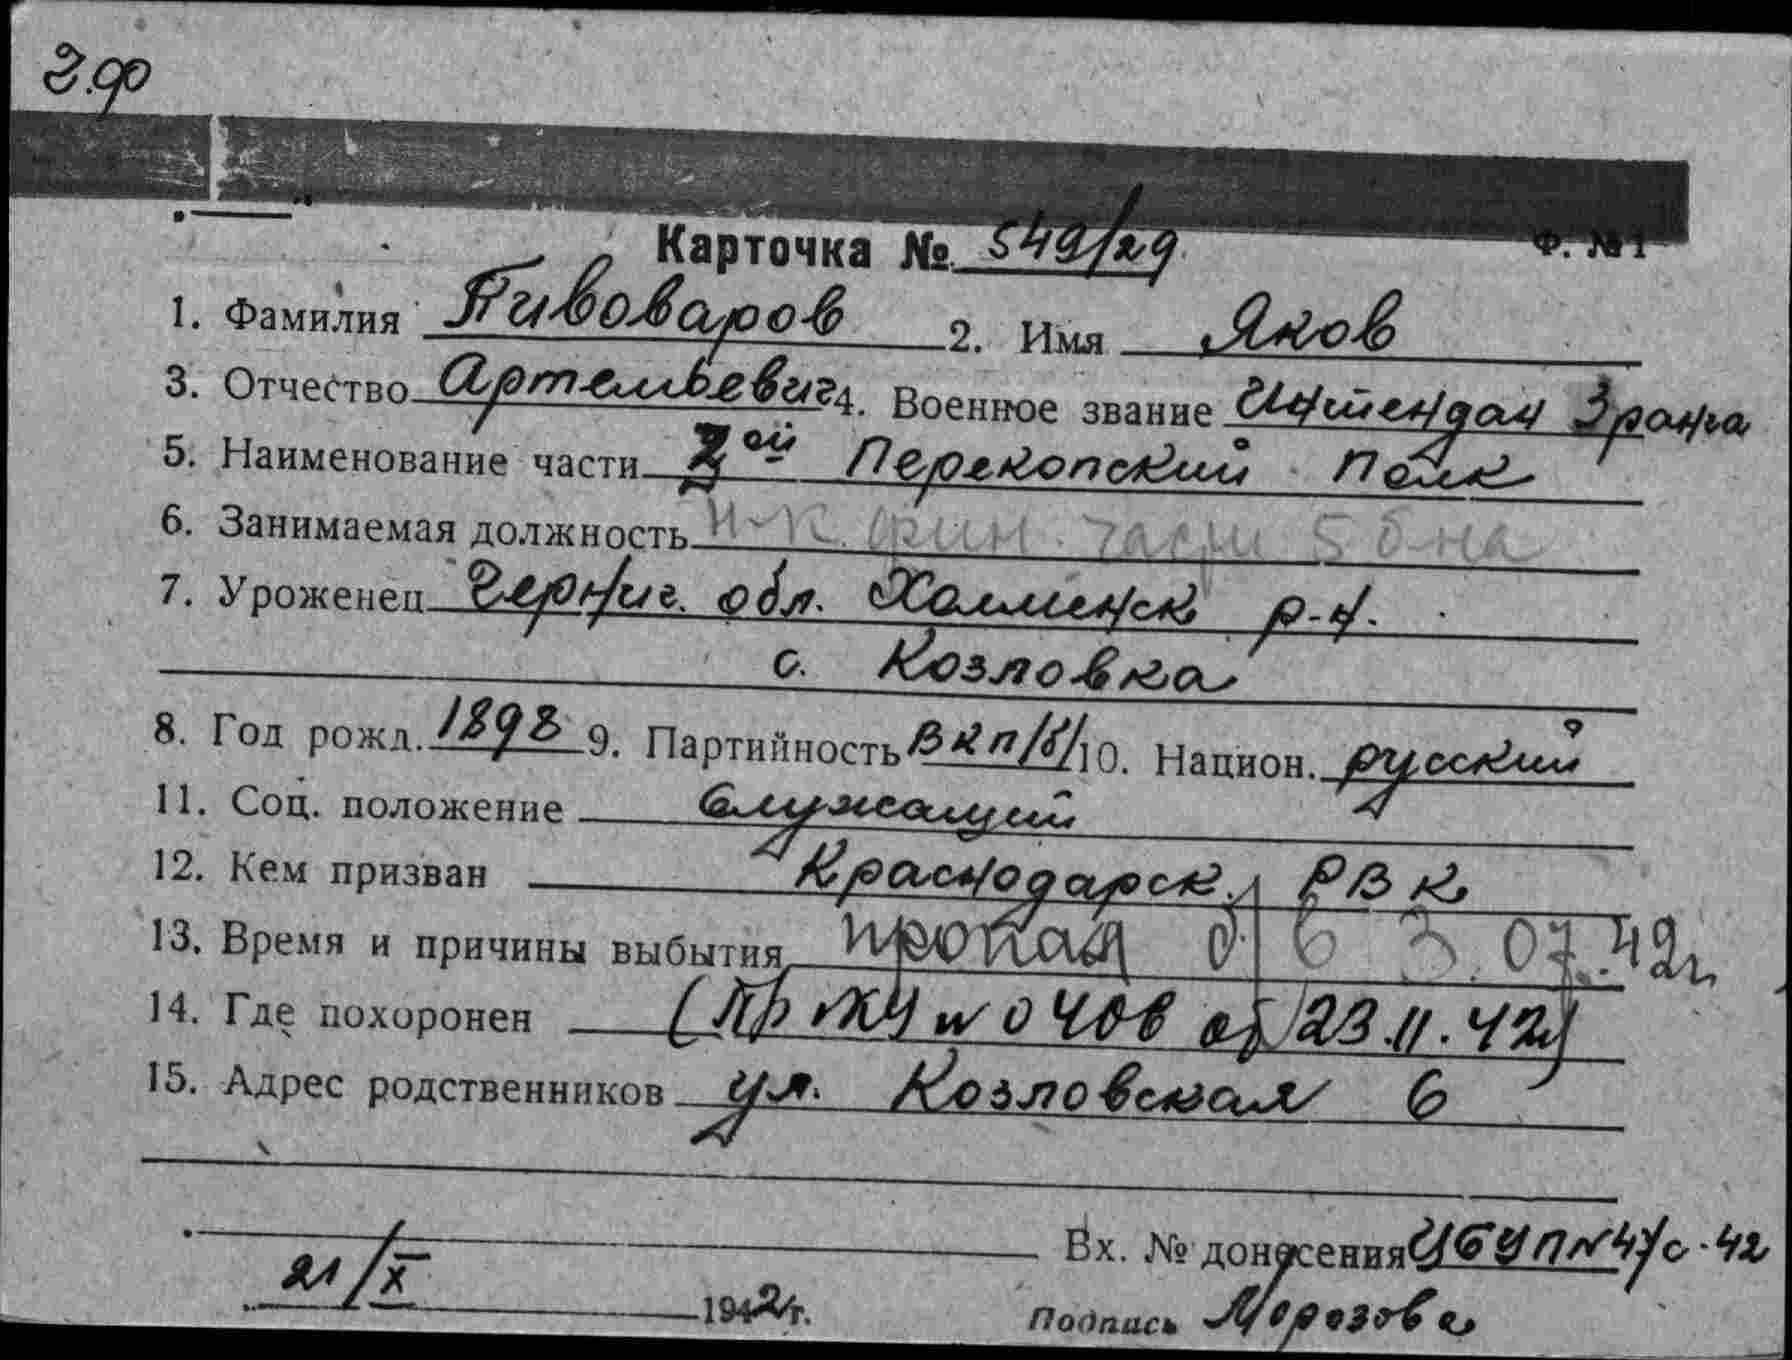 Карточка № 549/29 Ф. № 1
1. Фамилия Пивоваров 2. Имя Яков
3. Отчество Артемьевич 4. Военное звание Интендан 3 ранга
5. Наименование части 2ой Перекопский полк
6. Занимаемая должность н-к фин. части 5 б-на
7. Уроженец Черниг. обл. Холминск р-н.
с. Козловка
8. Год рожд. 1898 9. Партийность ВКП/б/ 10. Национ. русский
11. Соц. положение служащий
12. Кем призван Краснодарск. РВК
13. Время и причины выбытия пропал б/в 3.07.42г
14. Где похоронен (Пр НКУ № 0408 от 23.11.42)
15. Адрес родственников ул. Козловская 6
Вх. № донесения ЦБУП № 47с-42
21/X 1942г.
Подпись Морозова